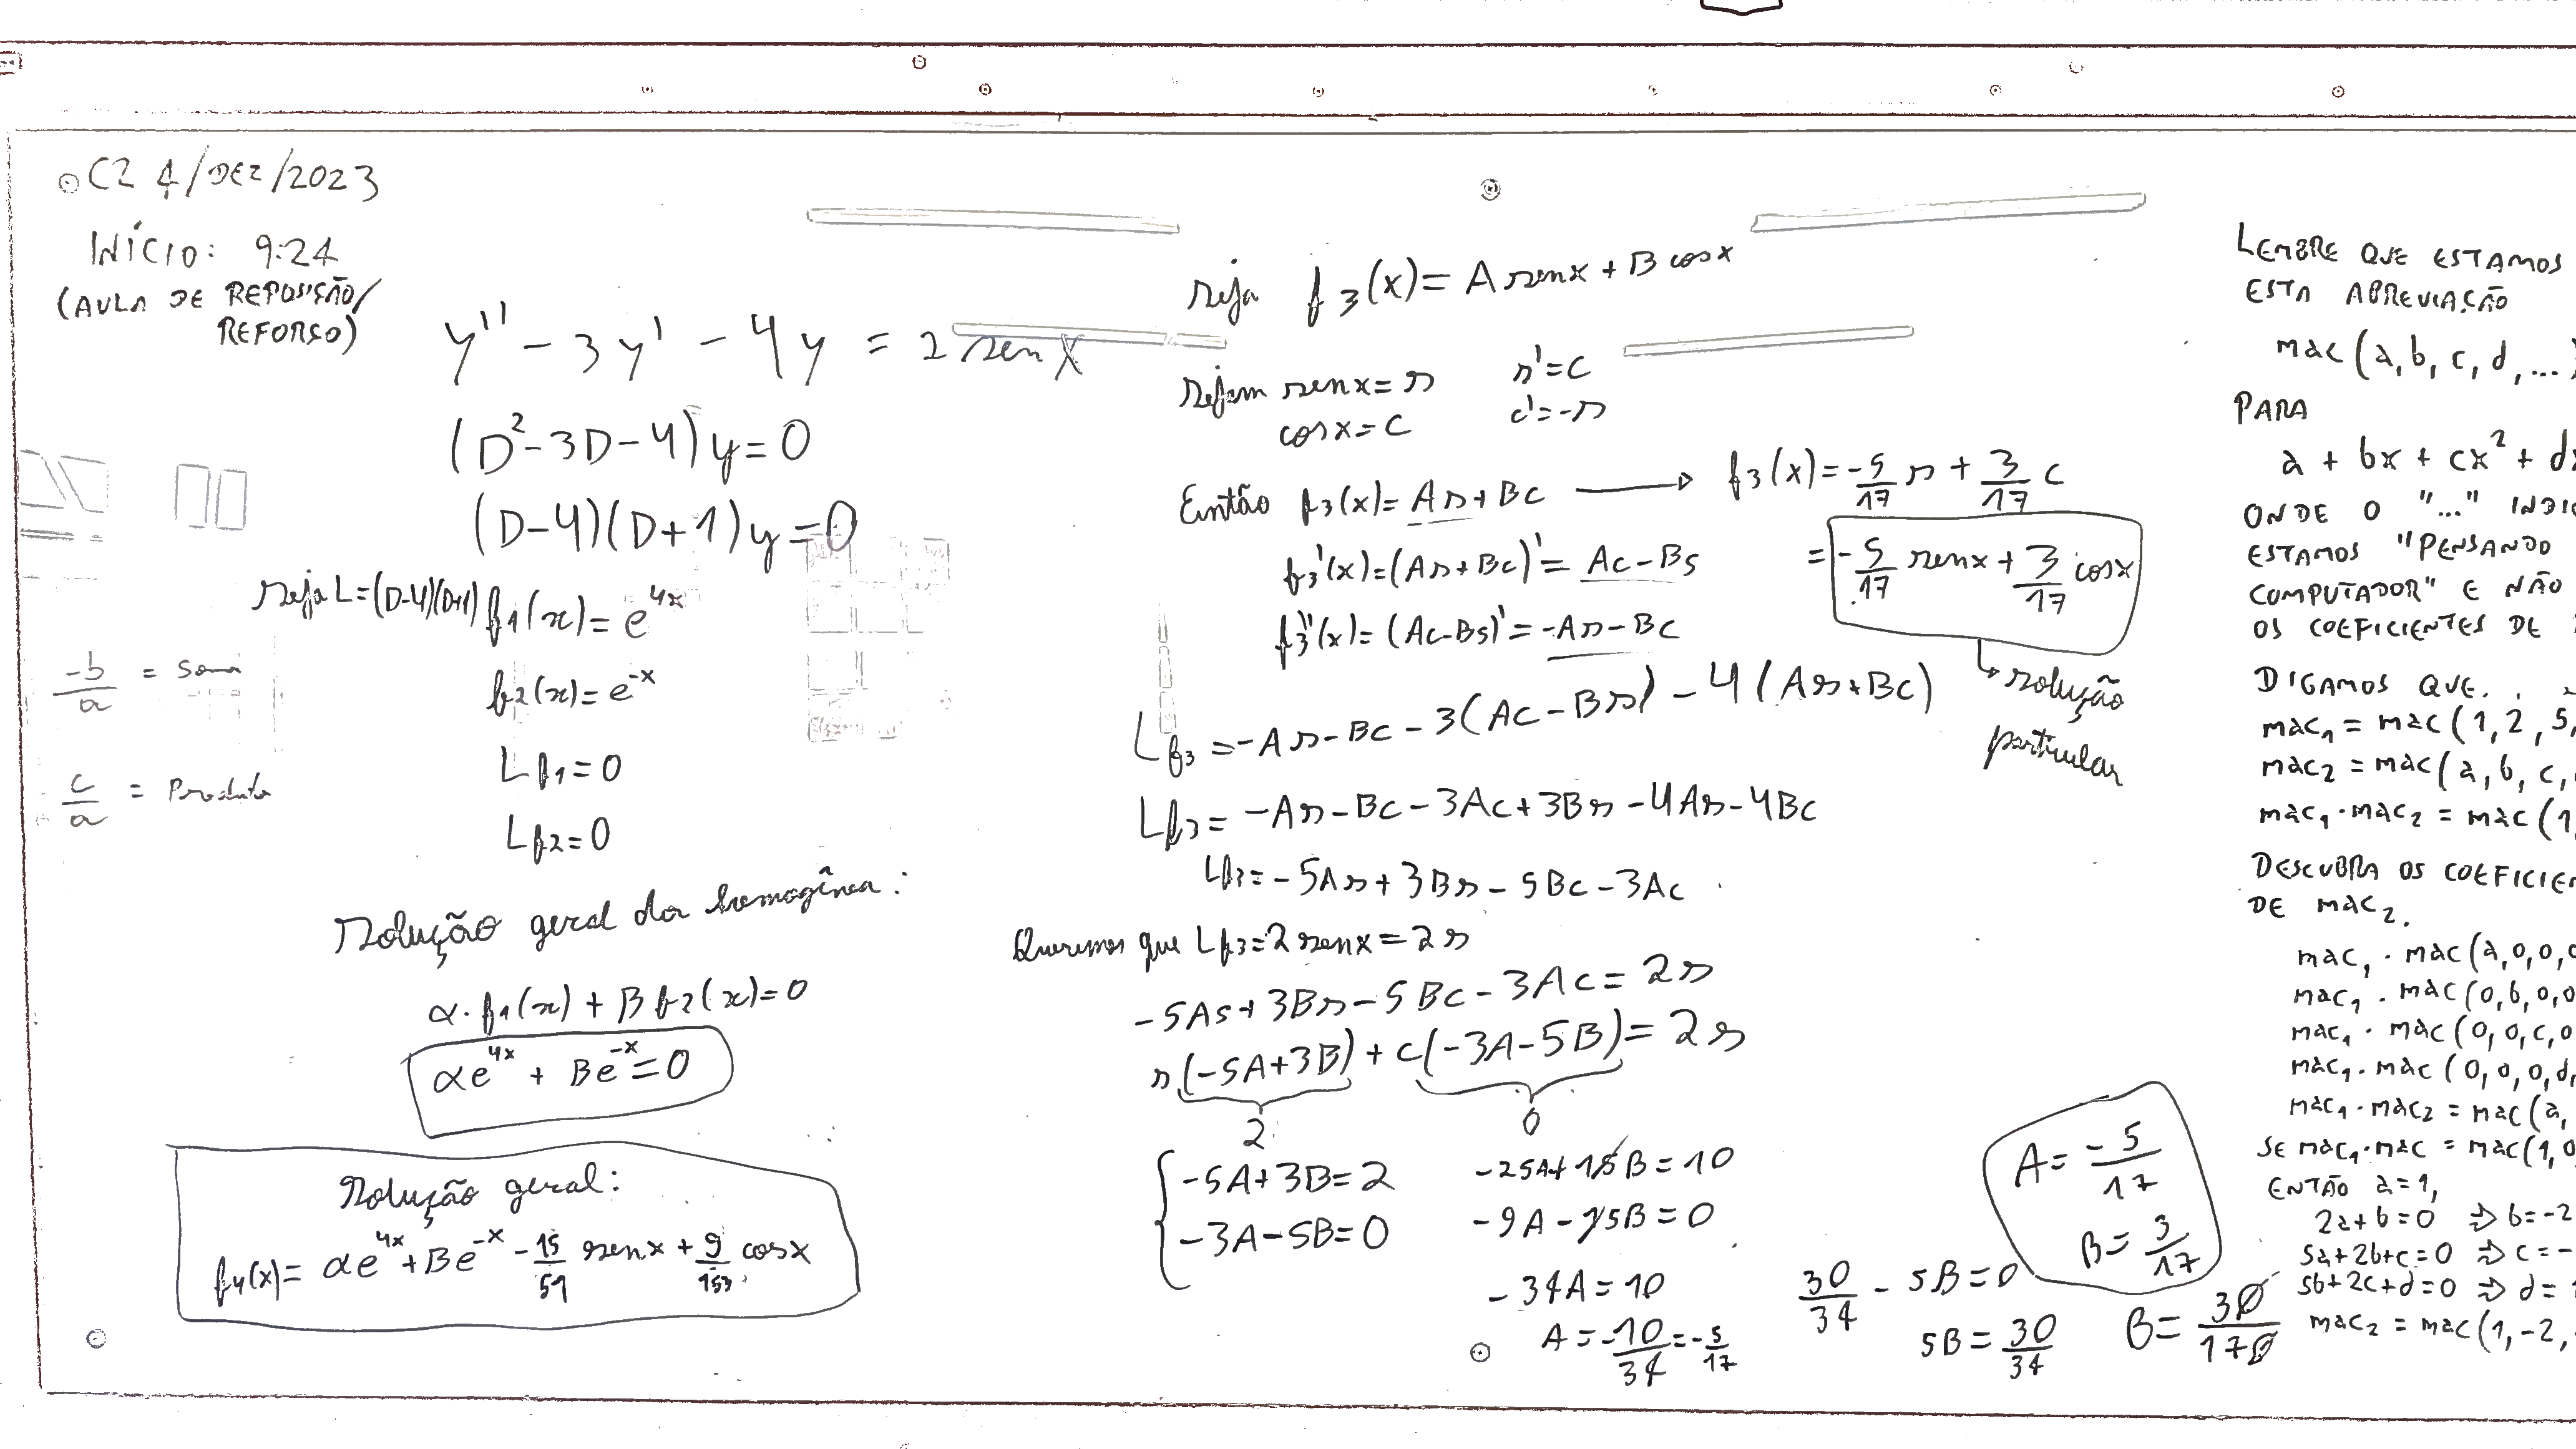 C2 4/DEZ/2023
INÍCIO: 9:24
(AULA DE REPOSIÇÃO/
REFORÇO)
y'' - 3y' - 4y = 2 sen x
(D²-3D-4)y=0
(D-4)(D+1)y=0
Seja L=(D-4)(D+1)
f₁(x)=e^{4x}
f₂(x)=e^{-x}
-b/a = Soma
c/a = Produto
Lf₁=0
Lf₂=0
Solução geral da homogênea:
α·f₁(x)+βf₂(x)=0
αe^{4x} + Be^{-x}=0
Solução geral:
f₄(x)= αe^{4x}+Be^{-x} - 15/51 senx + 9/153 cosx
Seja f₃(x)= A senx + B cosx
Sejam senx=s s'=c
cosx=c c'=-s
Então f₃(x)= As+Bc → f₃(x)= -5/17 s + 3/17 c
f₃'(x)=(As+Bc)'= Ac-Bs
= -5/17 senx + 3/17 cosx
f₃''(x)= (Ac-Bs)'= -As-Bc
solução
particular
Lf₃ = -As-Bc-3(Ac-Bs)-4(As+Bc)
Lf₃= -As-Bc-3Ac+3Bs-4As-4Bc
Lf₃= -5As+3Bs-5Bc-3Ac
Queremos que Lf₃=2senx=2s
-5As+3Bs-5Bc-3Ac=2s
s(-5A+3B)+c(-3A-5B)=2s
2 0
-5A+3B=2 -25A+15B=10
-3A-5B=0 -9A-15B=0
-34A=10
A=-10/34=-5/17
30/34 - 5B=0
5B=30/34
B=30/170
A=-5/17
B=3/17
LEMBRE QUE ESTAMOS
ESTA ABREVIAÇÃO
mac(a,b,c,d,...)
PARA
a + bx + cx² + dx
ONDE O "..." INDI
ESTAMOS "PENSANDO
COMPUTADOR" E NÃO
OS COEFICIENTES DE
DIGAMOS QUE
mac₁ = mac(1,2,5,
mac₂ = mac(a,b,c,
mac₁·mac₂ = mac(1,
DESCUBRA OS COEFICIEN
DE mac₂.
mac₁·mac(a,0,0,0
mac₁·mac(0,b,0,0
mac₁·mac(0,0,c,0
mac₁·mac(0,0,0,d,
mac₁·mac₂ = mac(a,
SE mac₁·mac = mac(1,0
ENTÃO a=1,
2a+b=0 ⇒ b=-2
5a+2b+c=0 ⇒ c=-
5b+2c+d=0 ⇒ d=
mac₂ = mac(1,-2,